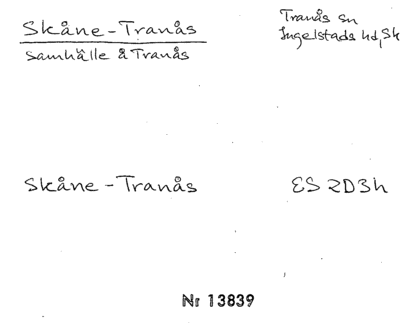 Skåne-Tranås
Tranås sn
Ingelstads hd, Sk
Samhälle å Tranås
Skåne-Tranås
ES 2D3h
Nr 13839